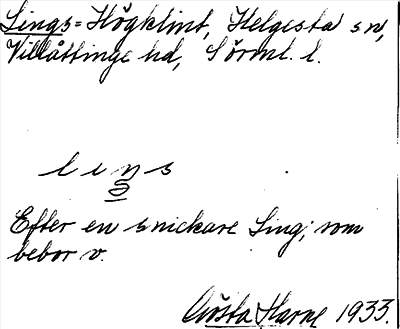 Lings=Högklint, Helgesta sn,
Villåttinge hd, Sörml. l.
lıŋs
Efter en snickare Ling, som
bebor v.
Gösta Harne 1933.